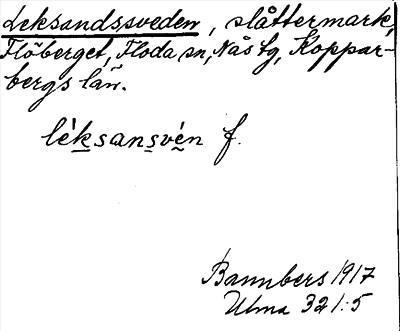 Leksandssveden, slåttermark,
Flöberget, Floda sn, Nås tg, Koppar-
bergs län.
léksansvén f.
Bannbers 1917
Ulma 321:5